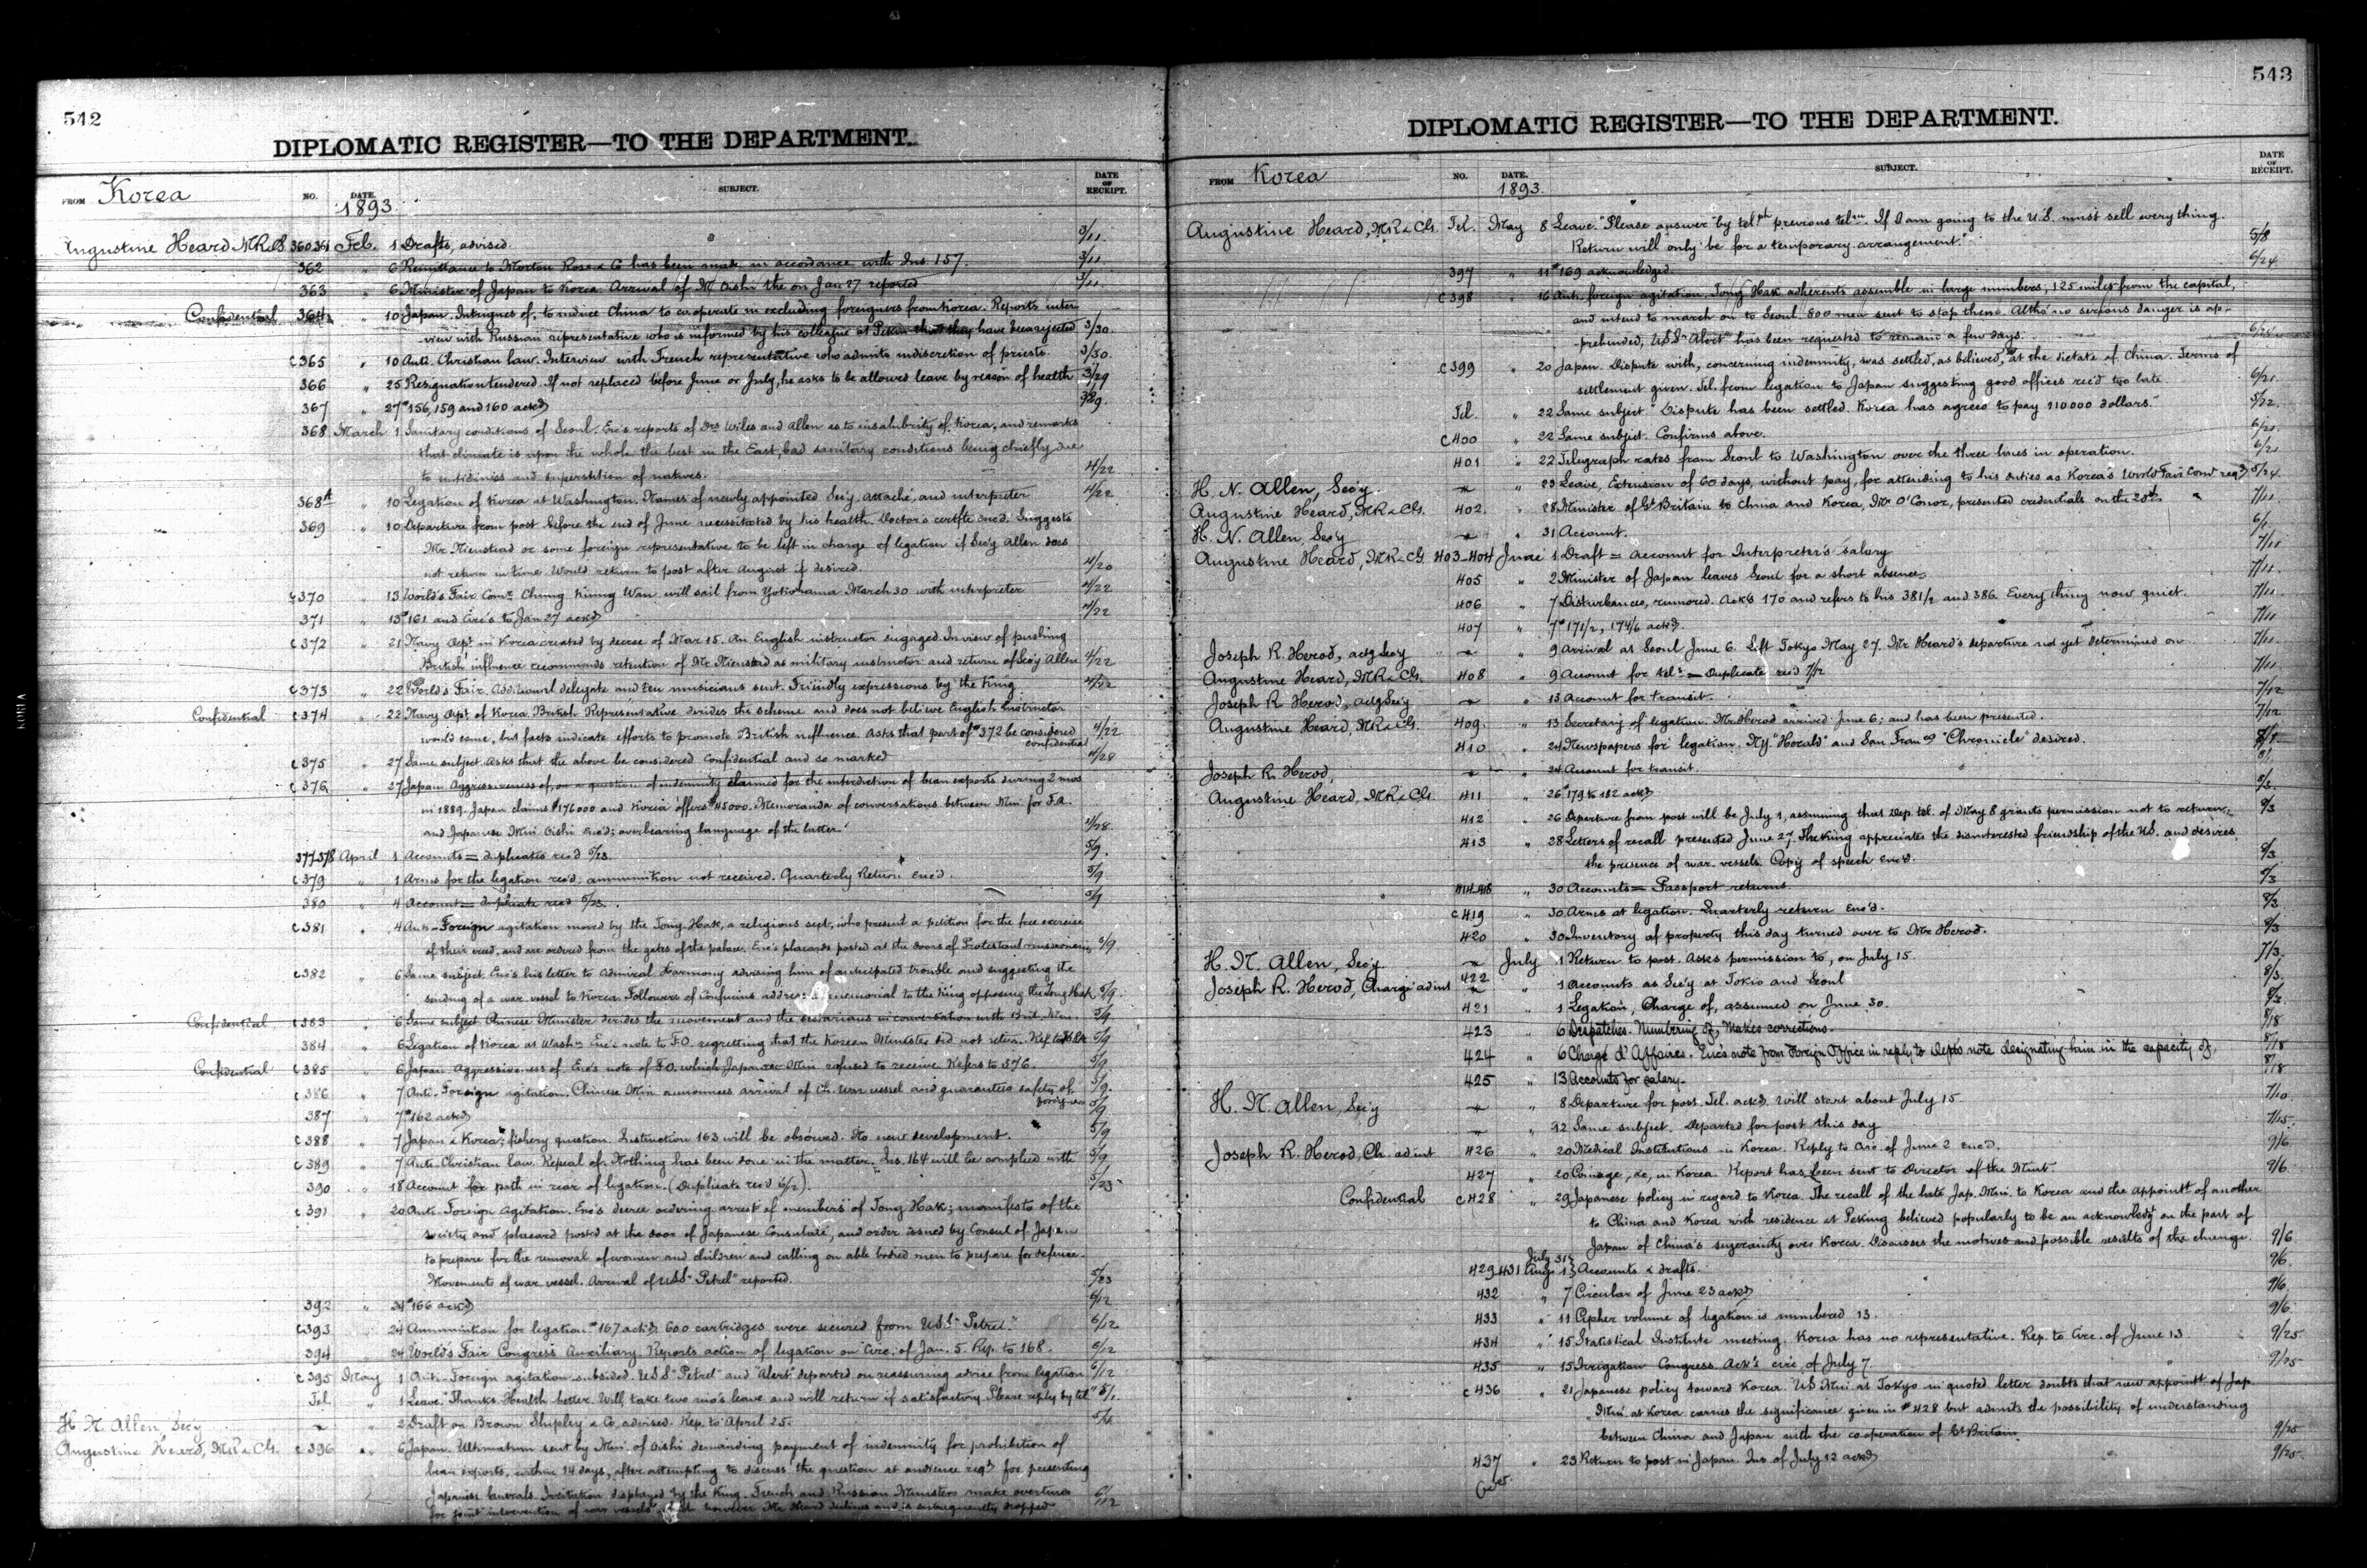 542
DIPLOMATIC REGISTER—TO THE DEPARTMENT.
FROM Korea NO. DATE. 1893. SUBJECT. DATE OF RECEIPT.
Augustine Heard MR&CG 360361 Feb. 1 Drafts, advised. 3/11
362 " 6 Remittance to Morton Rose & Co has been made in accordance with Ins. 157. 3/11
363 " 6 Minister of Japan to Korea. Arrival of Mr Oishi the on Jan 27 reported 3/11
Confidential 364 " 10 Japan. Intrigues of, to induce China to co operate in excluding foreigners from Korea. Reports inter
view with Russian representative who is informed by his colleague at Pekin that they have been rejected 3/30
c365 " 10 Anti. Christian law. Interview with French representative who admits indiscretion of priests. 3/30.
366 " 25 Resignation tendered. If not replaced before June or July, he asks to be allowed leave by reason of health 3/29
367 " 27 #156, 159 and 160 ackd
368 March 1 Sanitary conditions of Seoul. Enc's reports of Drs Wiles and Allen as to insalubrity of Korea, and remarks
that climate is upon the whole the best in the East, bad sanitary conditions being chiefly due
to and superstition of natives. 4/22
368½ " 10 Legation of Korea at Washington. Names of newly appointed Sec'y, attaché, and interpreter 4/22
369 " 10 Departure from post before the end of June necessitated by his health. Doctor's certfte encd. Suggests
Mr. Nienstead or some foreign representative to be left in charge of legation if Sec'y Allen does
not return in time. Would return to post after August if desired. 4/20
c370 " 13 World's Fair Comr. Chung Kiung Wan will sail from Yokohama March 30 with interpreter 4/22
371 " 13 #161 and Circ's to Jan 27 ackd 4/22
c372 " 21 Navy Dept. in Korea created by decree of Mar 15. An English instructor engaged. In view of pushing
British influence recommends retention of Mr Nienstead as military instructor and return of Sec'y Allen 4/22
c373 " 22 World's Fair. Additional delegate and ten musicians sent. Friendly expressions by the King. 4/22
Confidential c374 " 22 Navy Dept. of Korea. British Representative derides the scheme and does not believe English instructor
would come, but facts indicate efforts to promote British influence. Asks that part of #372 be considered confidential 4/22
c375 " 27 Same subject. Asks that the above be considered Confidential and so marked 4/28
c376 " 27 Japan. Aggressiveness of, on a question of indemnity claimed for the interdiction of bean exports during 2 mos
in 1889. Japan claims $176000 and Korea offers $45000. Memoranda of conversations between Min. for F.A.
and Japanese Min. Oishi Enc'd; overbearing language of the latter. 4/28
377.378 April 1 Accounts = duplicates rec'd 5/23. 5/9.
c379 " 1 Arms for the legation rec'd; ammunition not received. Quarterly Return Enc'd. 5/9
380 " 4 Account = duplicate recd 5/23. 5/9
c381 " 4 Anti-Foreign agitation moved by the Tong-Hak, a religious sect, who present a petition for the free exercise
of their creed, and are ordered from the gates of the palace. Enc's placards posted at the doors of Protestant missionaries 5/9.
c382 " 6 Same subject. Enc's his letter to Admiral Harmony advising him of anticipated trouble and suggesting the
sending of a war vessel to Korea. Followers of Confucius address a memorial to the King opposing the Tong Hak 5/9.
Confidential c383 " 6 Same subject. Chinese Minister derides the movement and the sectarians in conversation with Brit. Min. 5/9
384 " 6 Legation of Korea at Washn Enc's note to F.O. regretting that the Korean Minister did not return. 5/9
Confidential c385 " 6 Japan. Aggressiveness of. Enc's note of F.O. which Japanese Min refused to receive. Refers to 376. 5/9
c386 " 7 Anti-Foreign agitation. Chinese Min. announces arrival of Ch. war vessel and guarantees safety of foreigners 5/9.
387 " 7 #162 ackd 5/9
c388 " 7 Japan & Korea; fishery question. Instruction 163 will be observed. No new development. 5/9
c389 " 7 Anti-Christian law. Repeal of. Nothing has been done in the matter. Ins. 164 will be complied with 5/9
390 " 18 Account for path in rear of legation. (Duplicate rec'd 6/2). 5/23
c391 " 20 Anti. Foreign Agitation. Enc's decree ordering arrest of members of Tong Hak; manifesto of the
society and placard posted at the door of Japanese Consulate, and order issued by Consul of Japan
to prepare for the removal of women and children and calling on able bodied men to prepare for defense.
Movements of war vessel. Arrival of U.S.S. "Petrel" reported. 5/23
392 " 24 #166 ackd 6/12
c393 " 24 Ammunition for legation. #167 ackd. 600 cartridges were secured from U.S.S. "Petrel." 6/12
394 " 24 World's Fair Congress Auxiliary. Reports action of legation on Circ. of Jan. 5. Rep. to 168. 6/12
c395 May 1 Anti-Foreign agitation subsided. U.S.S. "Petrel" and "Alert" departed on reassuring advice from legation 6/12
Tel " 1 Leave. "Thanks. Health better. Will take two mo's leave and will return if satisfactory. Please reply by tel" 5/1.
H. N. Allen Sec'y " 2 Draft on Brown Shipley & Co. advised. Rep. to April 25.
Augustine Heard, MR & CG. c396 " 6 Japan. Ultimatum sent by Min. of Oishi demanding payment of indemnity for prohibition of
bean exports, within 14 days, after attempting to discuss the question at audience reqd for presenting
Japanese Generals. Irritation displayed by the King. French and Russian Ministers make overtures
for joint intervention of war vessels however Mr Heard declines and is subsequently dropped 6/12
543
DIPLOMATIC REGISTER—TO THE DEPARTMENT.
FROM Korea NO. DATE. 1893. SUBJECT. DATE OF RECEIPT.
Augustine Heard, MR & CG. Tel. May 8 Leave. "Please answer by telph previous telm. If I am going to the U.S. must sell everything.
Return will only be for a temporary arrangement." 5/8
397 " 11 #169 acknowledged 6/24
c398 " 16 Anti. foreign agitation. Tong Hak adherents assemble in large numbers, 125 miles from the capital,
and intend to march on to Seoul. 800 men sent to stop them. Altho' no serious danger is ap-
prehended, U.S.S. "Alert" has been requested to remain a few days.
c399 " 20 Japan. Dispute with, concerning indemnity, was settled, as believed, at the dictate of China. Terms of
settlement given. Tel. from legation to Japan suggesting good offices rec'd too late. 6/21
Tel. " 22 Same subject "Dispute has been settled. Korea has agreed to pay 110000 dollars." 5/22.
c400 " 22 Same subject. Confirms above. 6/21
401 " 22 Telegraph rates from Seoul to Washington over the three lines in operation. 6/21
H. N. Allen, Sec'y. " 23 Leave, Extension of 60 days, without pay, for attending to his duties as Korea's World Fair Comr reqd 5/24.
Augustine Heard, MR & CG. 402. " 28 Minister of Gt Britain to China and Korea, Mr O'Conor, presented credentials on the 20th 7/11
H. N. Allen, Sec'y " 31 Account. 6/1
Augustine Heard, MR & CG. 403-404 June 1 Draft = Account for Interpreter's salary 7/11
405 " 2 Minister of Japan leaves Seoul for a short absence 7/11
406 " 7 Disturbances, rumored. Ack's 170 and refers to his 381/2 and 386. Every thing now quiet. 7/11
407 " 7 #171/2, 174/6 ackd. 7/11
Joseph R. Herod, actg Sec'y " 9 Arrival at Seoul June 6. Left Tokyo May 27. Mr Heard's departure not yet determined on 7/11
Augustine Heard, MR & CG. 408 " 9 Account for tels = Duplicate rec'd 7/12 7/11
Joseph R Herod, actg Sec'y " 13 Account for transit. 7/12
Augustine Heard, MR & CG. 409. " 13 Secretary of legation. Mr Herod arrived June 6; and has been presented. 7/12
410 " 24 Newspapers for legation. N.Y. "Herald" and San Franco "Chronicle" desired.
Joseph R. Herod, " 24 Account for transit.
Augustine Heard, MR & CG. 411 " 26 #179 to 182 ackd
412 " 26 Departure from post will be July 1, assuming that Dep. tel. of May 8 grants permission not to return. 8/3
413 " 28 Letters of recall presented June 27. The King appreciates the disinterested friendship of the U.S. and desires
the presence of war vessels. Copy of speech Enc'd. 8/3
414-418 " 30 Accounts = Passport returns 8/3
c419 " 30 Arms at legation. Quarterly return Enc'd. 8/3
420 " 30 Inventory of property this day turned over to Mr Herod. 8/3
H. N. Allen, Sec'y. July 1 Return to post. Asks permission to, on July 15. 7/3.
Joseph R. Herod, Chargé ad int 422 " 1 Accounts as Sec'y at Tokio and Seoul 8/3
421 " 1 Legation, Charge of, assumed on June 30. 8/3
423 " 6 Despatches. Numbering of, Makes corrections. 8/18
424 " 6 Chargé d'Affaires. Enc's note from Foreign Office in reply to Dept's note designating him in the capacity of. 8/18
425 " 13 Accounts for salary. 8/18
H. N. Allen, Sec'y " 8 Departure for post. Tel. ackd. Will start about July 15 7/10
" 12 Same subject. Departed for post this day 7/15.
Joseph R. Herod, Ch. ad int 426 " 20 Medical Institutions in Korea. Reply to Circ. of June 2 enc'd. 9/6
427 " 20 Coinage, &c, in Korea. Report has been sent to Director of the Mint 9/6
Confidential c428 " 29 Japanese policy in regard to Korea. The recall of the late Jap. Min. to Korea and the appointt of another
to China and Korea with residence at Peking believed popularly to be an acknowledgt on the part of
Japan of China's suzerainty over Korea. Discusses the motives and possible results of the change. 9/6
429 431 July 31 Aug. 1 } Accounts & drafts. 9/6.
432 " 7 Circular of June 23 ackd 9/6
433 " 11 Cipher volume of legation is numbered 13. 9/6.
434 " 15 Statistical Institute meeting. Korea has no representative. Rep. to Circ. of June 13 9/25
435 " 15 Irrigation Congress. Ack's circ of July 7. 9/25
c436 " 21 Japanese policy toward Korea. US Min. at Tokyo in quoted letter doubts that new appointt of Jap
Min. at Korea carries the significance given in #428 but admits the possibility of understanding
between China and Japan with the co-operation of Gt Britain. 9/25
437 " 23 Return to post in Japan. Ins. of July 12 ackd 9/25
Over.